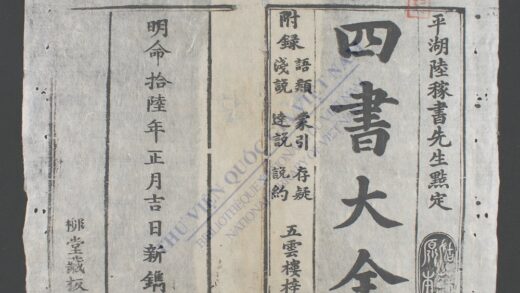 平湖陸稼書先生點定
四書大全
附錄
語類 蒙引 存疑
淺說 達說 說約
五雲樓梓
明命拾陸年正月吉日新鐫
柳堂藏板
THƯ VIỆN QUỐC GIA VIỆT NAM
BIBLIOTHÈQUE NATIONALE DU VIETNAM
NATIONAL